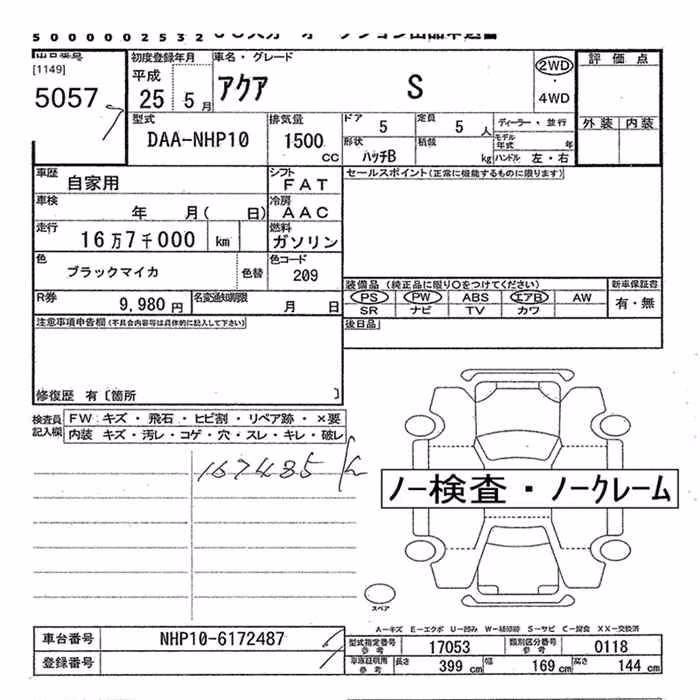 5000002532
[1149]
5057
初度登録年月
平成
25 5月
車名・グレード
アクア S
2WD
・
4WD
評価点
外装 内装
型式
DAA-NHP10
排気量
1500
cc
ドア
5
定員
5 人
形状
ハッチB
積載
kg
ディーラー・並行
モデル
年式 年
ハンドル 左・右
車歴
自家用
シフト
FAT
セールスポイント(正常に機能するものに限ります)
車検
年 月( 日)
冷房
AAC
走行
16万7千000 km
燃料
ガソリン
色
ブラックマイカ
色替
色コード
209
装備品(純正品に限り○をつけてください)
新車保証書
PS PW ABS エアB AW
有・無
SR ナビ TV カワ
R券
9,980円
名変通知期限
月 日
後日品
注意事項申告欄(不具合内容等は具体的に記入して下さい)
修復歴 有〔箇所 〕
検査員
記入欄
FW キズ・飛石・ヒビ割・リペア跡・×要
内装 キズ・汚レ・コゲ・穴・スレ・キレ・破レ
167485
ノー検査・ノークレーム
スペア
A-キズ E-エクボ U-凹み W-補修跡 S-サビ C-腐食 XX-交換済
車台番号
NHP10-6172487
登録番号
型式指定番号
参考
17053
類別区分番号
参考
0118
車庫証明用
参考
長さ
399 cm
幅
169 cm
高さ
144 cm